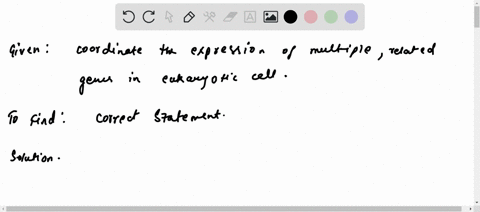 Given: coordinate the expression of multiple, related
genes in eukaryotic cell.
To find: correct statement.
Solution.